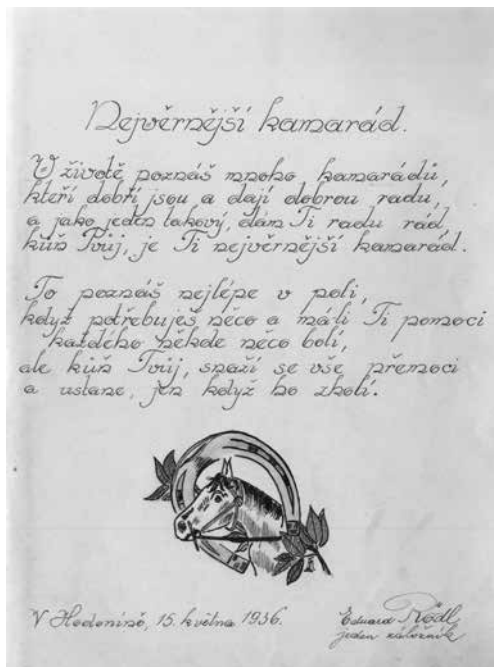 Nejvěrnější kamarád.
V životě poznáš mnoho kamarádů,
kteří dobří jsou a dají dobrou radu,
a jako jeden takový, dám Ti radu rád,
kůň Tvůj, je Ti nejvěrnější kamarád.
To poznáš nejlépe v poli,
když potřebuješ něco a máli Ti pomoci
každého někde něco bolí,
ale kůň Tvůj, snaží se vše přemoci
a ustane, jen když ho zholí.
V Hodoníně, 15. května 1936.
Eduard Rödl
jeden záložník